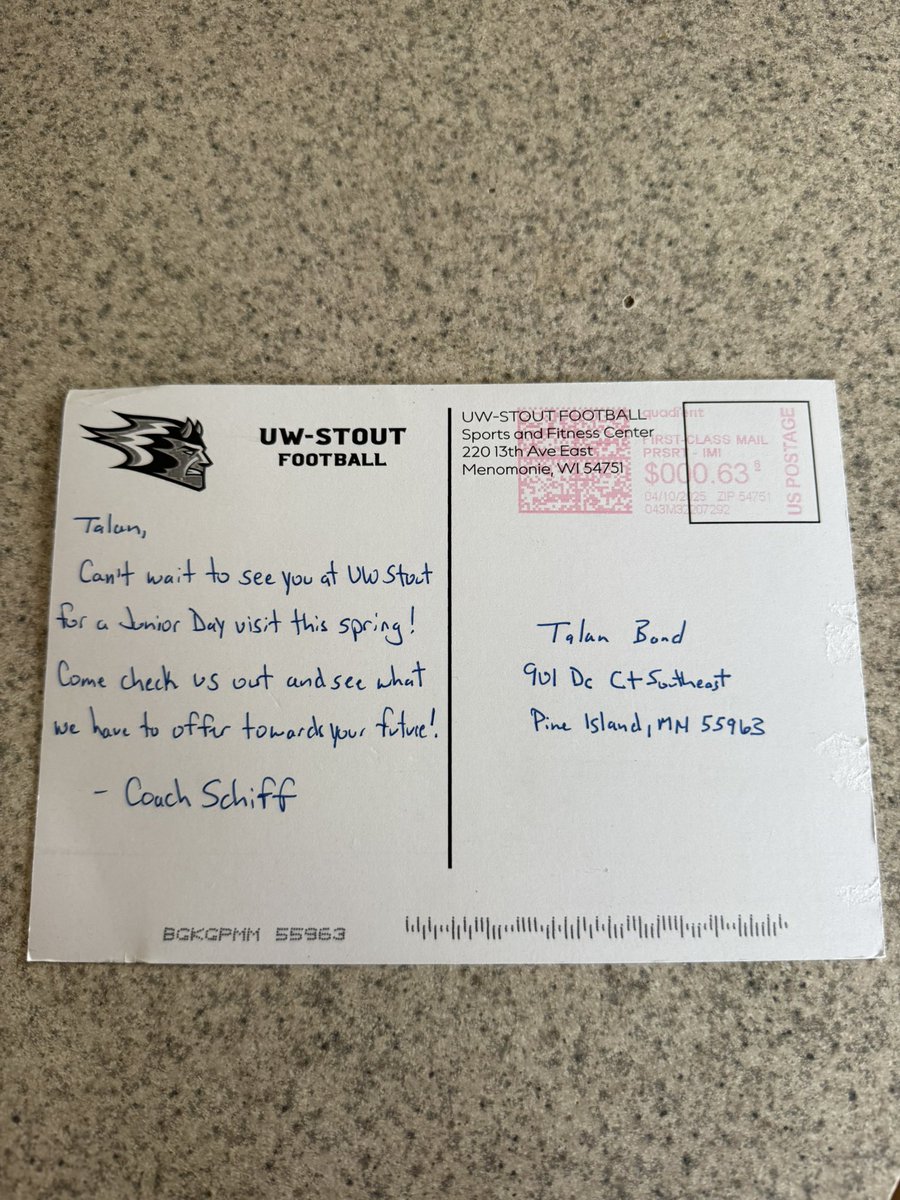 UW-STOUT
FOOTBALL
Talan,
Can't wait to see you at UW Stout
for a Junior Day visit this spring!
Come check us out and see what
we have to offer towards your future!
- Coach Schiff
UW-STOUT FOOTBALL
Sports and Fitness Center
220 13th Ave East
Menomonie, WI 54751
quadient
FIRST-CLASS MAIL
PRSRT - IMI
$000.63
04/10/2025 ZIP 54751
043M32207292
US POSTAGE
Talan Bond
901 Dc Ct Southeast
Pine Island, MN 55963
BGKGPMM 55963